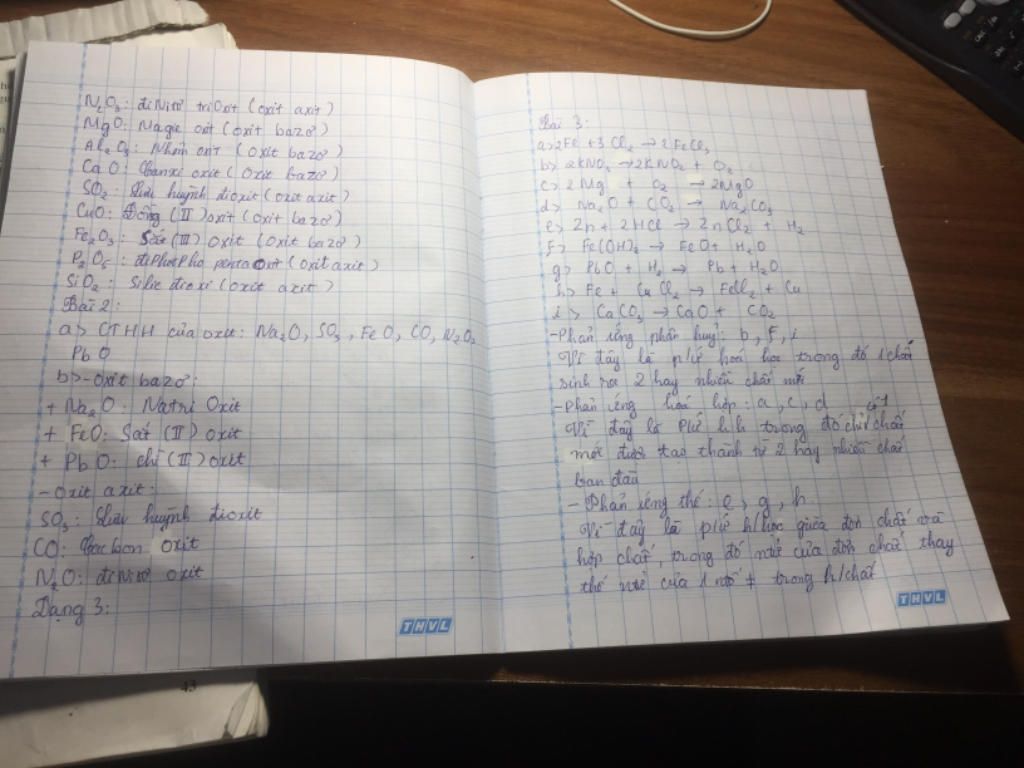 N₂O₃: đinitơ trioxit (oxit axit)
MgO: Magie oxit (oxit bazơ)
Al₂O₃: Nhôm oxit (oxit bazơ)
CaO: Canxi oxit (oxit bazơ)
SO₂: Lưu huỳnh đioxit (oxit axit)
CuO: Đồng (II) oxit (oxit bazơ)
Fe₂O₃: Sắt (III) oxit (oxit bazơ)
P₂O₅: điphotpho pentaoxit (oxit axit)
SiO₂: Silic đioxi (oxit axit)
Bài 2:
a> CTHH của oxit: Na₂O, SO₃, FeO, CO, N₂O,
PbO
b> - Oxit bazơ:
+ Na₂O: Natri Oxit
+ FeO: Sắt (II) oxit
+ PbO: chì (II) oxit
- Oxit axit:
SO₃: Lưu huỳnh đioxit
CO: Cacbon oxit
N₂O: đinitơ oxit
Dạng 3:
THVL
Bài 3:
a> 2Fe + 3Cl₂ → 2FeCl₃
b> 2KNO₃ → 2KNO₂ + O₂
c> 2Mg + O₂ → 2MgO
d> Na₂O + CO₂ → Na₂CO₃
e> Zn + 2HCl → ZnCl₂ + H₂
f> Fe(OH)₂ → FeO + H₂O
g> PbO + H₂ → Pb + H₂O
h> Fe + CuCl₂ → FeCl₂ + Cu
i> CaCO₃ → CaO + CO₂
- Phản ứng phân huỷ: b, f, i
Vì đây là p/ứ hoá học trong đó 1 chất
sinh ra 2 hay nhiều chất mới
- Phản ứng hoá hợp: a, c, d
Vì đây là p/ứ h/h trong đó chỉ có 1 chất
mới được tạo thành từ 2 hay nhiều chất
ban đầu
- Phản ứng thế: e, g, h
Vì đây là p/ứ h/học giữa đơn chất và
hợp chất, trong đó n/tử của đơn chất thay
thế n/tử của 1 n/tố trong h/chất
THVL